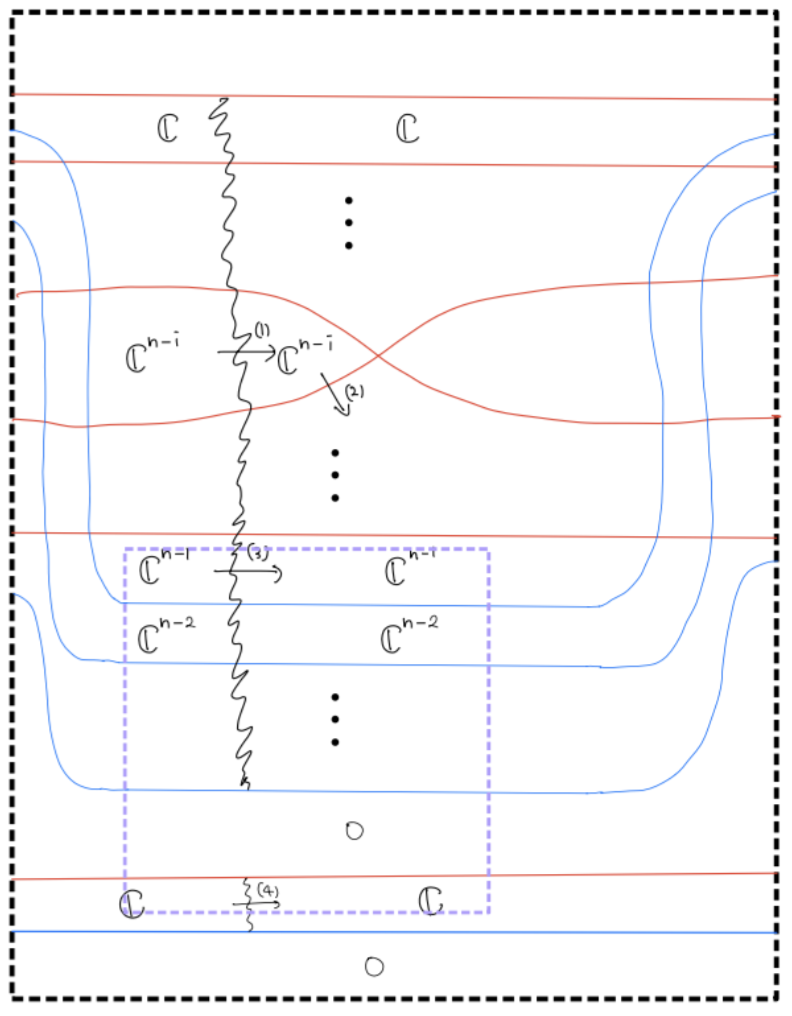 ℂ ℂ
⋮
ℂⁿ⁻ⁱ (1) ℂⁿ⁻ⁱ
(2)
⋮
ℂⁿ⁻¹ (3) ℂⁿ⁻¹
ℂⁿ⁻² ℂⁿ⁻²
⋮
0
ℂ (4) ℂ
0